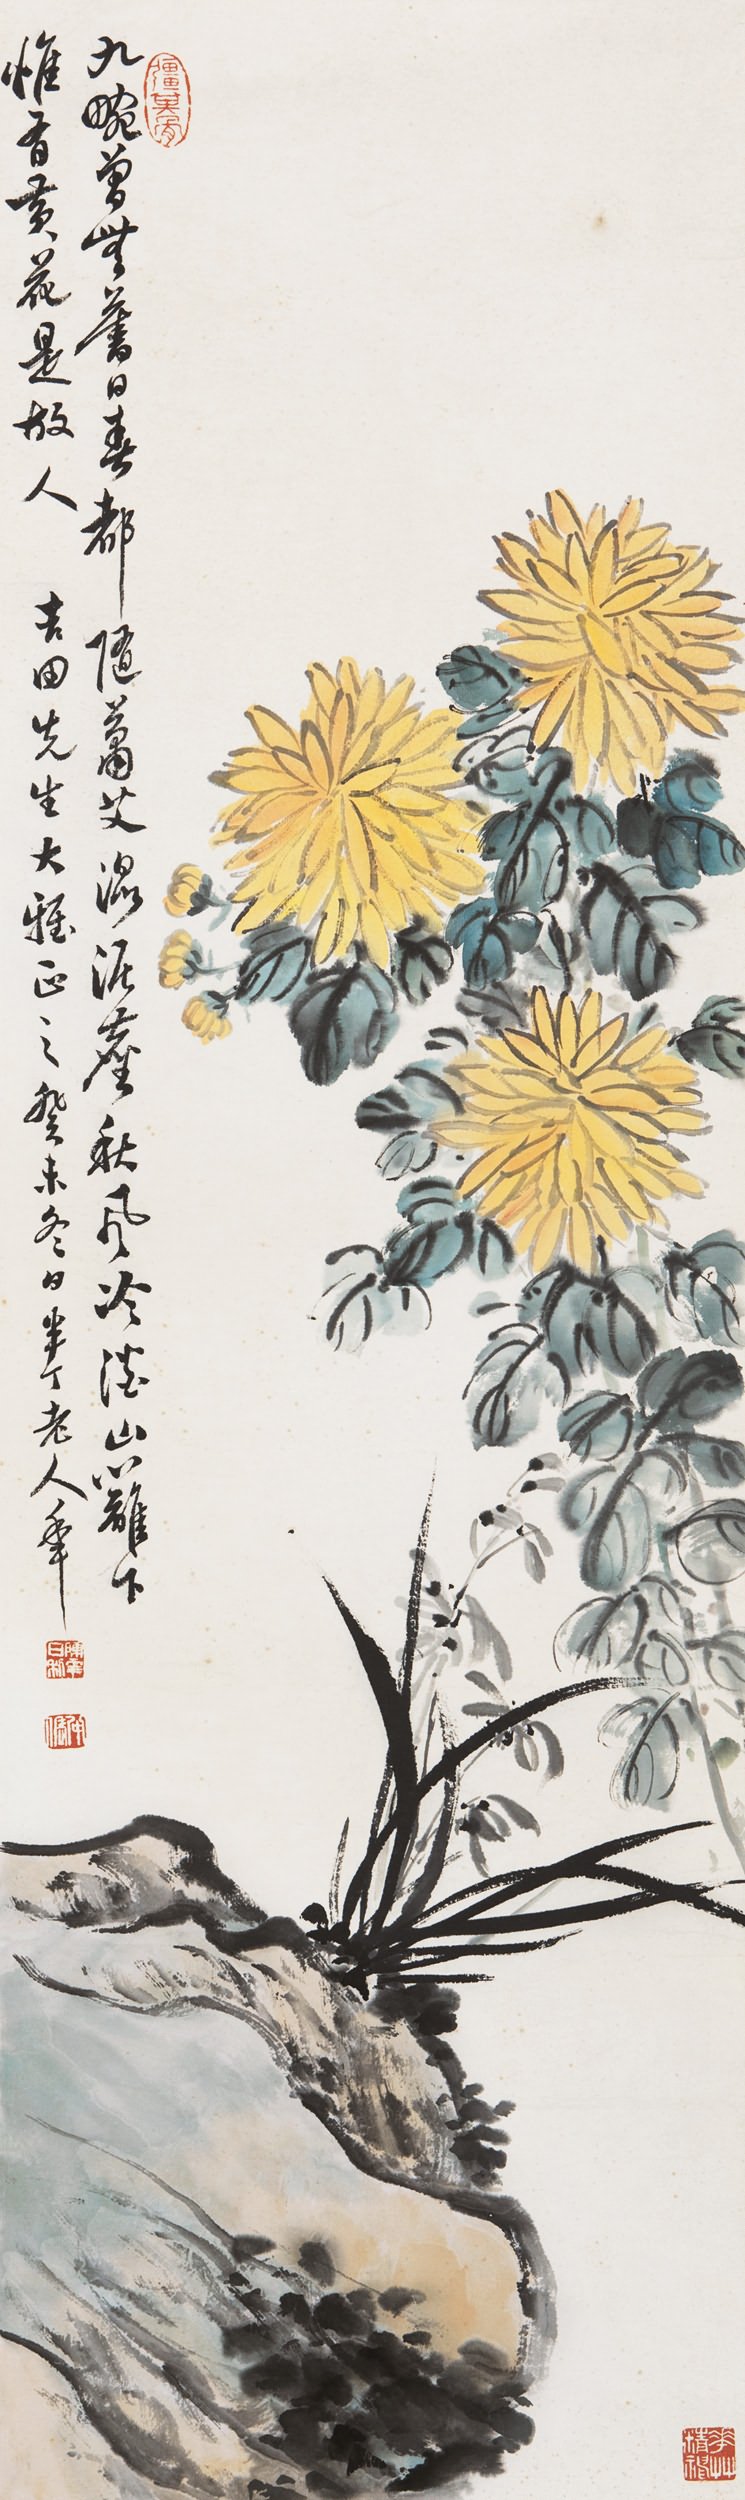 九畹曾無舊日春都隨蕭艾混泥塵秋風冷澹山籬下
惟有黄花是故人
吉田先生大雅正之癸未冬日半丁老人年
陳年
日利